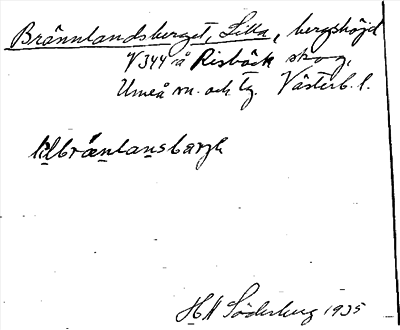 Brännlandsberget, Lilla, bergshöjd
V344 å Risbäck skog,
Umeå sn. och tg. Västerb. l.
lilbrænlansbærjh
H Söderberg 1935